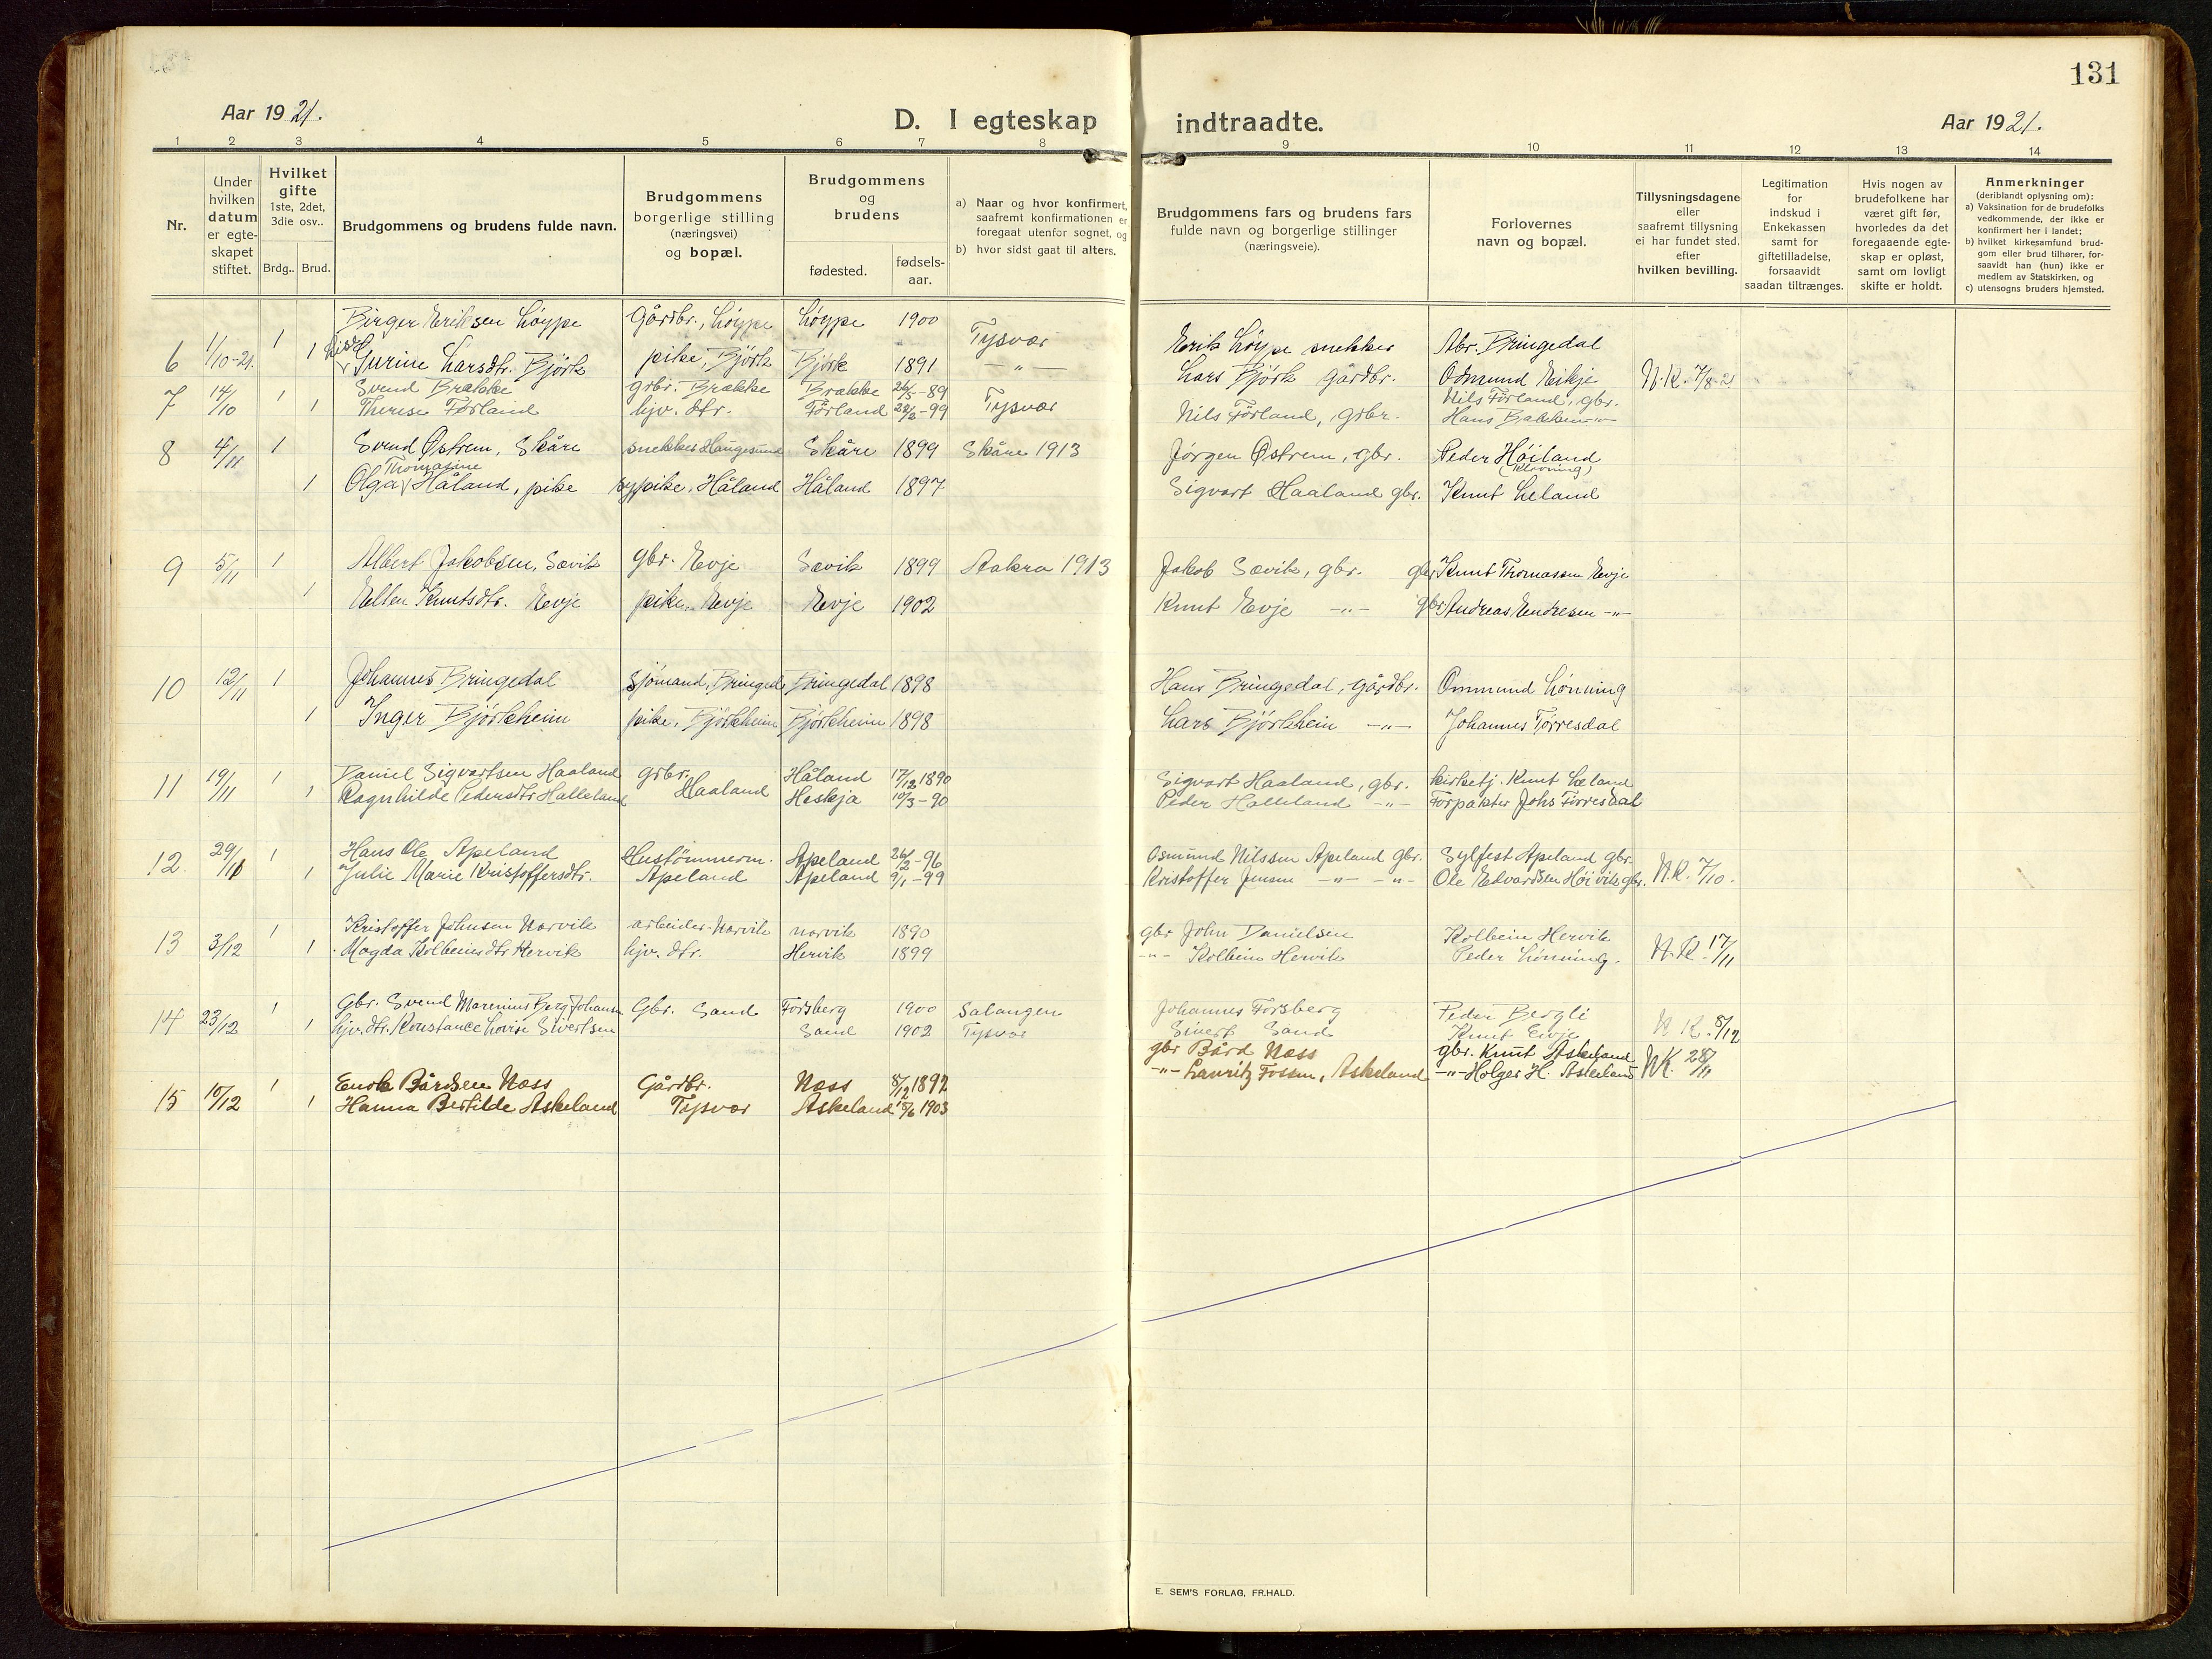 131
Aar 1921.
D. I egteskap indtraadte.
Aar 1921.
1 2 3 4 5 6 7 8 9 10 11 12 13 14
Nr.
Under hvilken datum er egteskapet stiftet.
Hvilket gifte
1ste, 2det, 3die osv..
Brdg.. Brud.
Brudgommens og brudens fulde navn.
Brudgommens borgerlige stilling (næringsvei) og bopæl.
Brudgommens og brudens
fødested.
fødselsaar.
a) Naar og hvor konfirmert, saafremt konfirmationen er foregaat utenfor sognet, og
b) hvor sidst gaat til alters.
Brudgommens fars og brudens fars fulde navn og borgerlige stillinger (næringsveie).
Forlovernes navn og bopæl.
Tillysningsdagene eller saafremt tillysning ei har fundet sted, efter hvilken bevilling.
Legitimation for indskud i Enkekassen samt for giftetilladelse, forsaavidt saadan tiltrænges.
Hvis nogen av brudefolkene har været gift før, hvorledes da det foregaaende egteskap er opløst, samt om lovligt skifte er holdt.
Anmerkninger
(deriblandt oplysning om):
a) Vaksination for de brudefolks vedkommende, der ikke er konfirmert her i landet;
b) hvilket kirkesamfund brudgom eller brud tilhører, forsaavidt han (hun) ikke er medlem av Statskirken, og
c) utensogns bruders hjemsted.
6 1/10-21. 1 Birger Eriksen Løyppe Gårdbr., Løyppe Løyppe 1900 Tysvær Erik Løyppe snekker Abr. Bringedal
1 Gurine Larsdtr. Bjørk pike, Bjørk Bjørk 1891 -"- Lars Bjørk Gårdbr. Odmund Eikje N.K. 7/8-21
7 14/10 1 Svend Brække grbr. Brække Brække 26/5-89 Tysvær Nils Førland, gbr.
1 Therese Førland hjv. dtr. Førland 22/2-99 Nils Førland, grbr. Hans Bakken -"-
8 4/11 1 Svend Østrem, Skåre snekker Haugesund Skåre 1899 Skåre 1913 Jørgen Østrem, gbr. Peder Høiland
Thomasine
1 Olga Håland, pike sypike, Håland Håland 1897 Sigvart Haaland gbr. Knut Leland
9 5/11 1 Albert Jakobsen, Sævik gbr. Evje Sævik 1899 Aakra 1913 Jakob Sævik, gbr. gbr Knut Thomassen Evje
1 Ellen Knutsdtr. Evje pike, Evje Evje 1902 Knut Evje -"- gbr Andreas Endresen -"-
10 12/11 1 Johannes Bringedal Sjømand, Bringed. Bringedal 1898 Hans Bringedal, gårdbr. Ommund Lønning
1 Inger Bjørkheim pike, Bjørkheim Bjørkheim 1898 Lars Bjørkheim -"- Johannes Førresdal
11 19/11 1 Daniel Sigvartsen Haaland grbr. Håland 17/12 1890 Sigvart Haaland, gbr. kirketj. Knut Leland
1 Ragnhilde Pedersdtr Halleland Haaland Heskja 10/3-90 Peder Halleland -"- Forpakter Johs Førresdal
12. 29/10 1 Hans Ole Apeland Hustømmerm. Apeland 26/2-96 Osmund Nilssen Apeland gbr. Sylfest Apeland gbr.
1 Julie Marie Kristoffersdtr. Apeland Apeland 9/1-99 Kristoffer Jensen -"- -"- Ole Edvardsen Høivik gbr. N.K. 7/10.
13 3/12 1 Kristoffer Johnsen Norvik arbeider Norvik Norvik 1890 gbr John Danielsen Kolbein Hervik
1 Magda Kolbeinsdtr Hervik hjv. dtr. Hervik 1899 -"- Kolbein Hervik Peder Lønning. N.K. 17/11
14 23/12 1 Gbr. Svend Marenius Berg Johansen Gbr. Sand Forsberg 1900 Salangen Johannes Forsberg Peder Bergli
1 hjv. dtr. Konstance Lovise Sivertsen Sand 1902 Tysvær Sivert Sand Knut Evje N.K. 8/12
15 10/12 1 Enok Bårdsen Næss Gårdbr. Næss 8/12 1892 gbr Bård Næss gbr. Knut Askeland NK. 28/11
1 Hanna Bertilde Askeland Tysvær Askeland 15/6 1903 -"- Lauritz Fossen, Askeland -"- Holger H. Askeland
E. SEM'S FORLAG, FR.HALD.